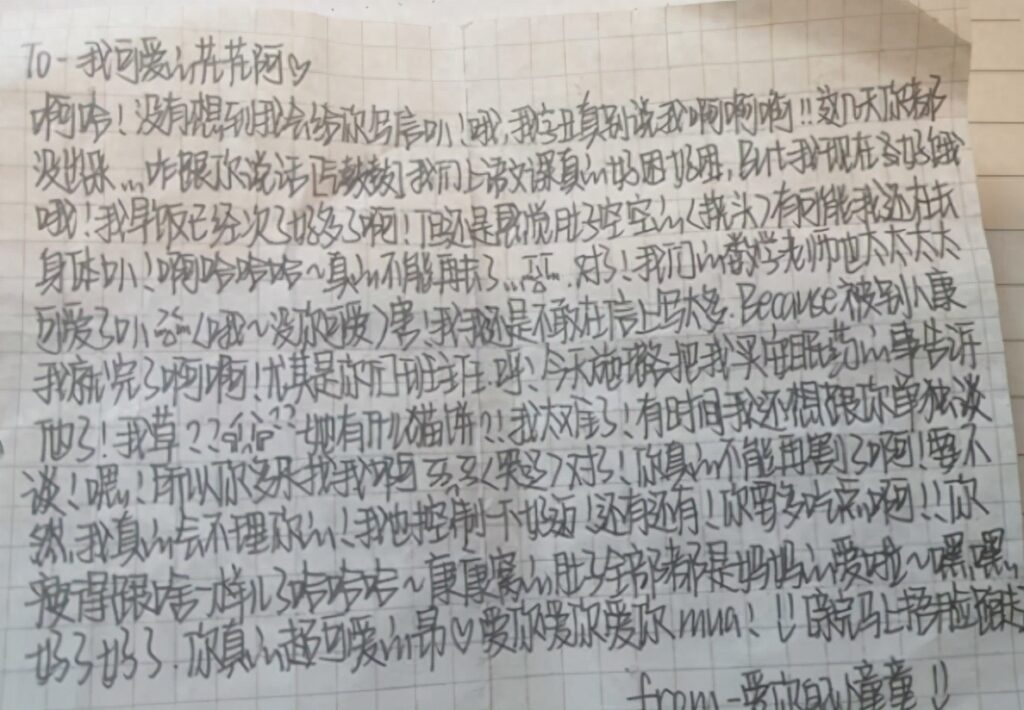 To-我可爱的芘芘阿♡
啊哈！没有想到我会给你写信叭！哦,我字丑真别说我啊啊啊!!这几天你都
没出来...咋跟你说话[气鼓鼓]我们上语文课真的好困好困,自从我现在多好饿
哦！我早饭已经次了好多了啊！但还是感觉肚子空空的(挠头)有可能我还在长
身体叭！啊哈哈哈哈~真的不能再长了...对了！我们的数学老师也太太太太
可爱了叭(哦~没你可爱)害！我还是不敢在信上写太多.Because被别人康
我就完了啊啊！尤其是你们班班主任.呼！今天施璐把我买安眠药的事告诉
她了！我草??她有什么猫饼??我太难了！有时间我还想跟你单独谈
谈！嘿！所以你多来找我啊(哭了)对了！你真的不能再割了啊！要不
然,我真的会不理你的！我也控制一下好趴！还有还有！你要多吃点啊!!你
瘦得跟啥一样儿了哈哈哈~康康窝的肚子全部都是妈妈的爱啦~嘿,嘿,
好了好了.你真的超可爱的昂♡爱你爱你爱你mua!!!
from-爱你的小童童!!